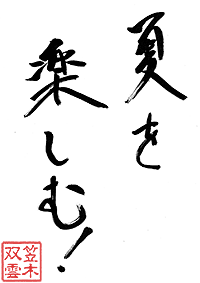 夏を
楽しむ!
笠木
双雲